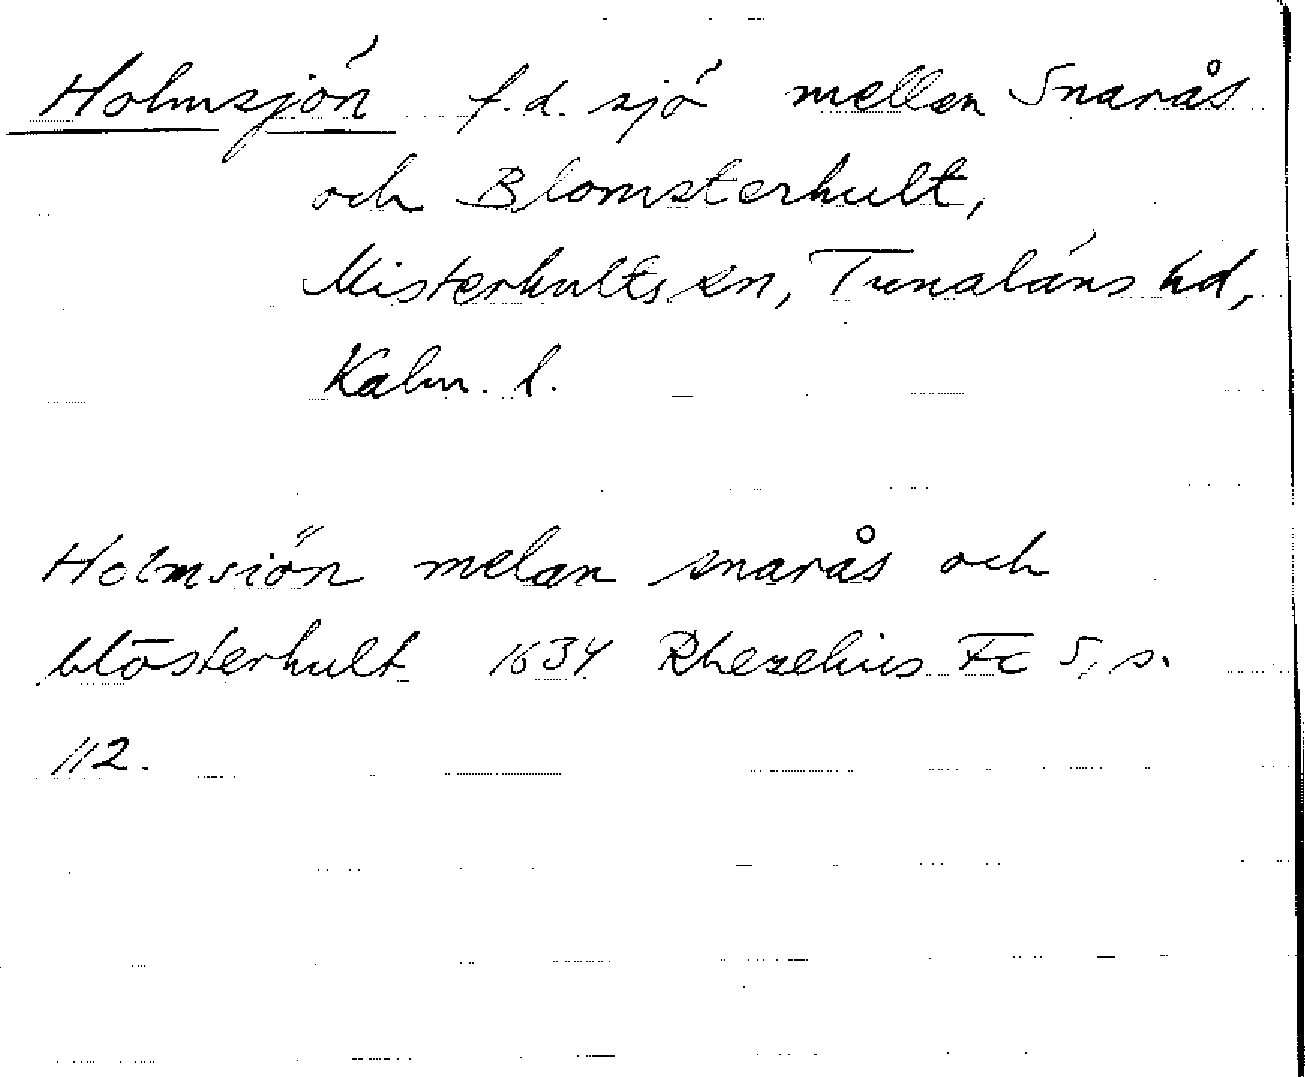 Holmsjön f.d. sjö mellan Snarås
och Blomsterhult,
Misterhults sn, Tunaläns hd,
Kalm. l.
Holmsiön melan snarås och
blōsterhult 1634 Rhezelius Fc 5, s.
112.